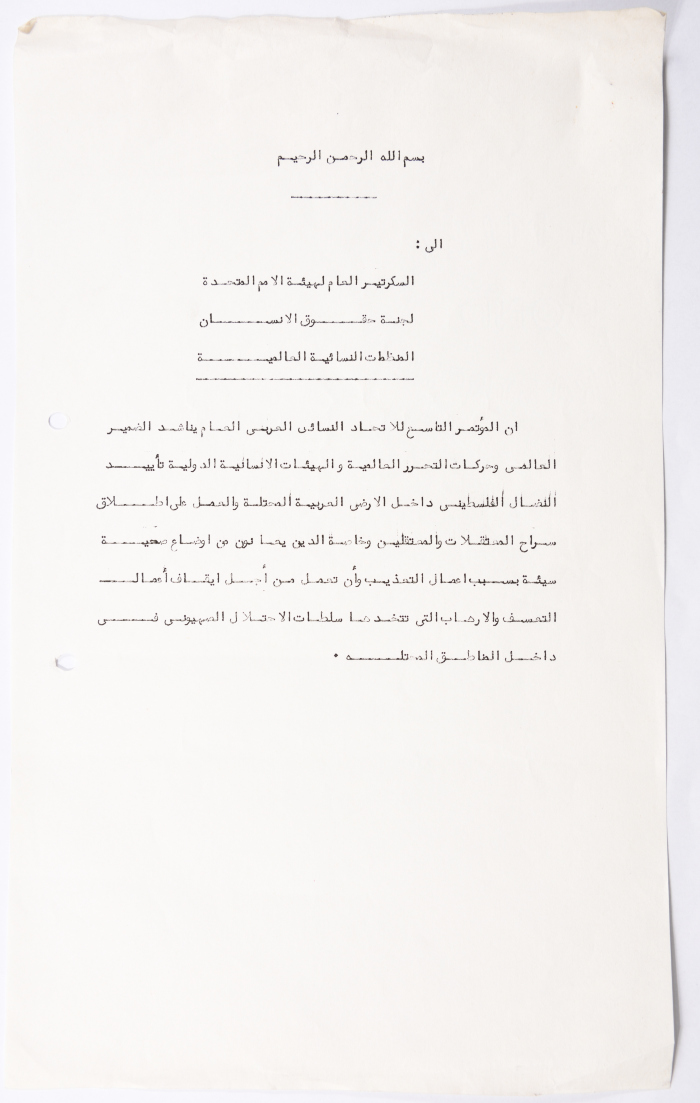 بسم الله الرحمن الرحيم
الى :
السكرتير العام لهيئة الامم المتحدة
لجنة حقوق الانسان
المنظمات النسائية العالمية
ان المؤتمر التاسع للاتحاد النسائى العربى العام يناشد الضمير
العالمى وحركات التحرر العالمية والهيئات الانسانية الدولية تأييد
النضال الفلسطينى داخل الارض العربية المحتلة والعمل على اطلاق
سراح المعتقلات والمعتقلين وخاصة الذين يعانون من اوضاع صحية
سيئة بسبب اعمال التعذيب وأن تعمل من أجل ايقاف أعمال
التعسف والارهاب التى تتخدها سلطات الاحتلال الصهيونى فى
داخل المناطق المحتله ٠